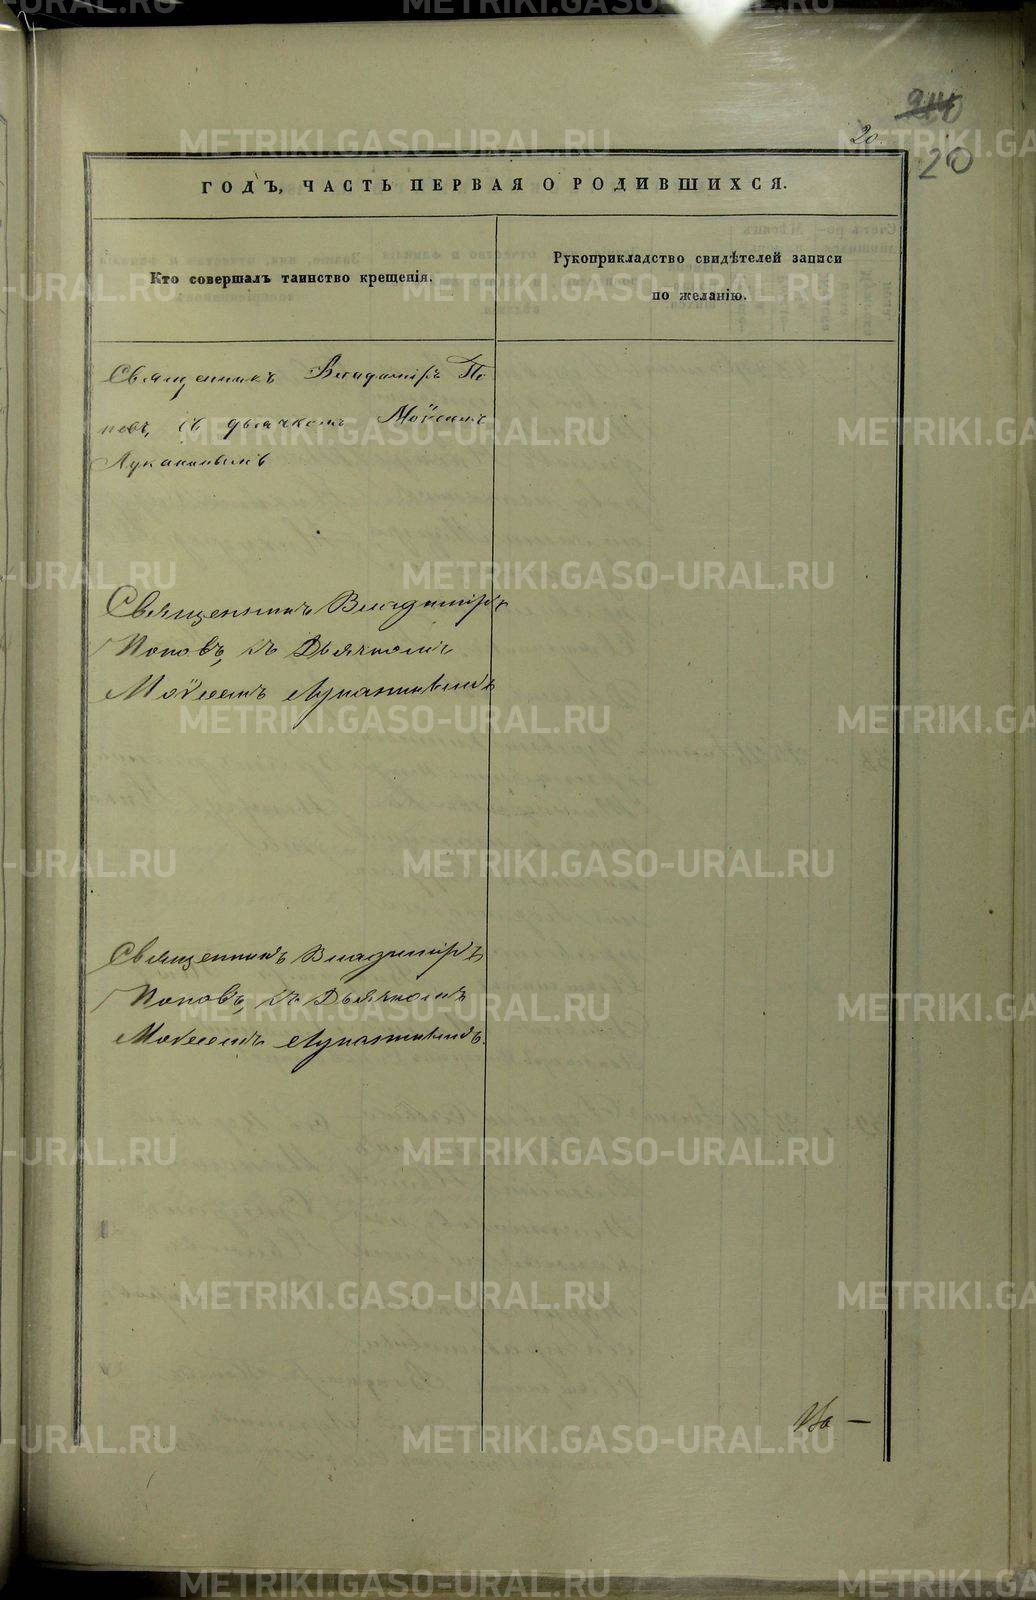 210
20.
20
ГОДЪ, ЧАСТЬ ПЕРВАЯ О РОДИВШИХСЯ.
Кто совершалъ таинство крещенія.
Рукоприкладство свидѣтелей записи
по желанію.
Священникъ Владиміръ По
повъ, съ дьячкомъ Моѵсеемъ
Луканинымъ
Священникъ Владиміръ
Поповъ, съ Дьячкомъ
Моѵсеемъ Луканинымъ
Священникъ Владиміръ
Поповъ, съ Дьячкомъ
Моѵсеемъ Луканинымъ.
METRIKI.GASO-URAL.RU